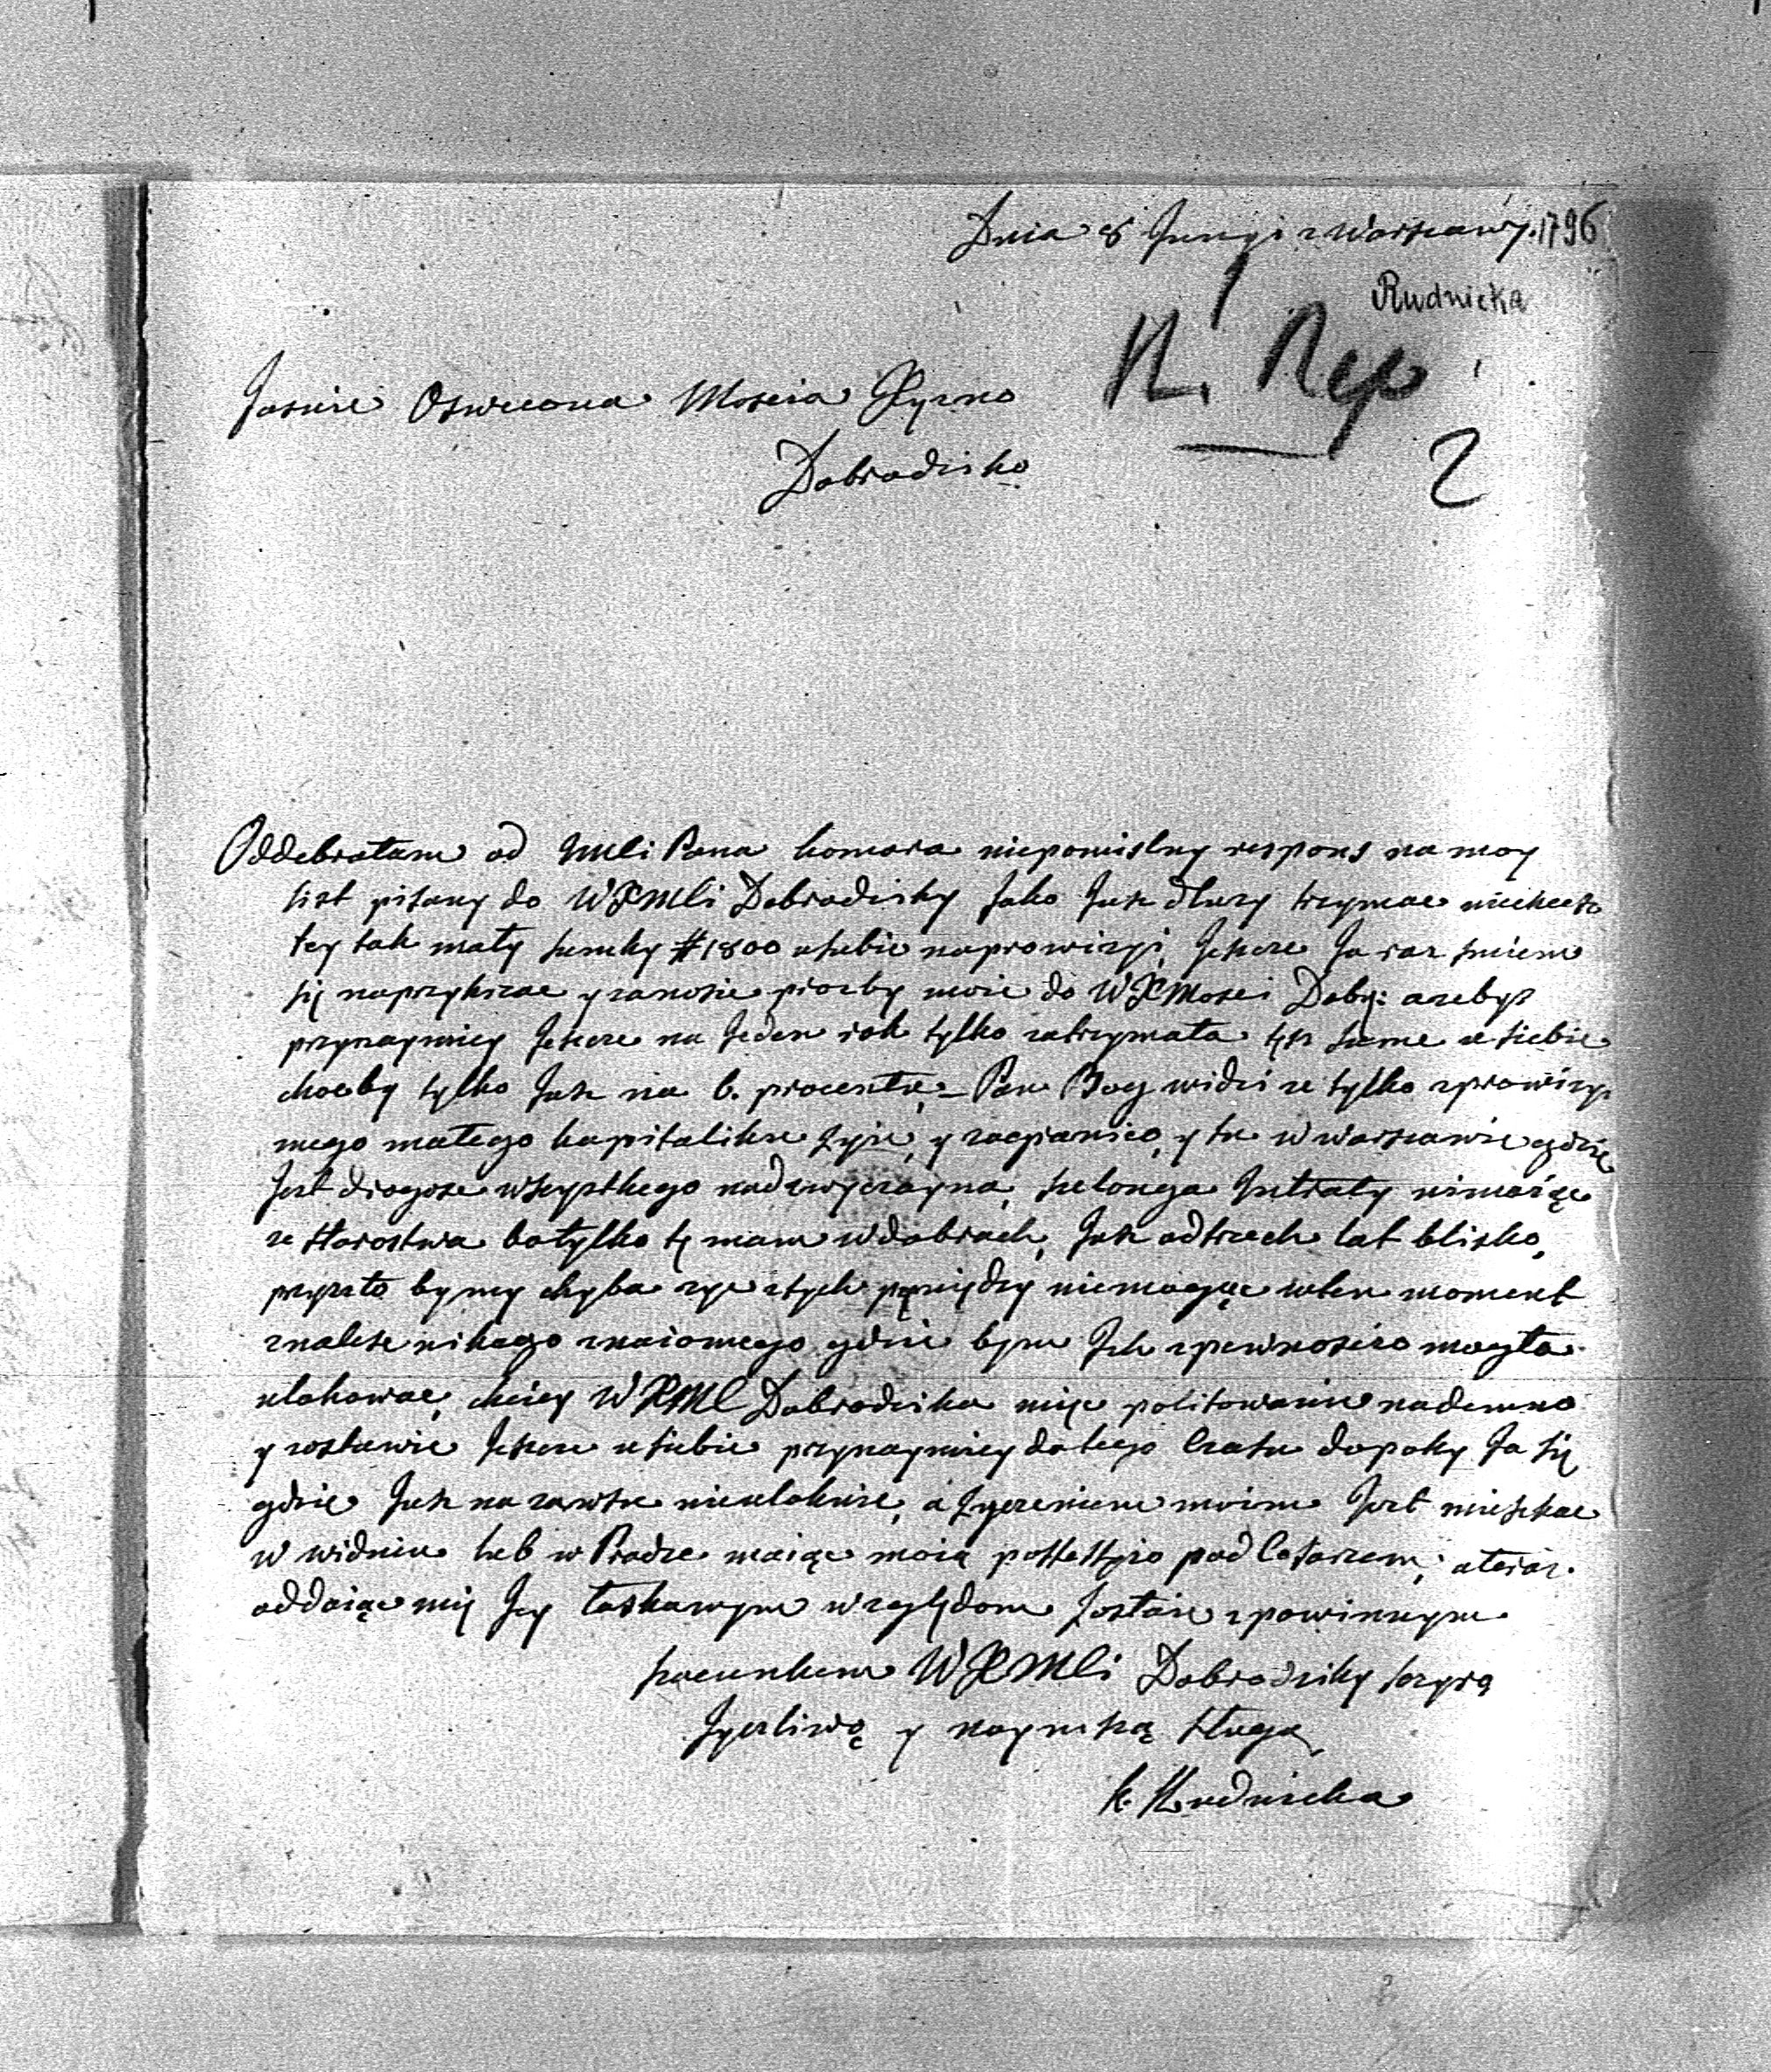 Dnia 8 Junyi z Warszawy. 1796
Rudnicka
N. Rep
2
Jasnie Oswiecona Moscia Xięzno
Dobrodziko
Oddebrałam od JmCi Pana Komara niepomislny respons na moy
list pisany do WXMCi Dobrodziky Jako Jusz dłuzy trzymac niechcesz
tey tak mały sumky #1800 u siebie na prowizyi, Jeszcze Ja raz smiem
się naprzykrzac y zanosic prozby moie do WXMosci Dobyi azebys
przynaymniey Jeszcze na Jeden rok tylko zatrzymała tęsz sume u siebie
chocby tylko Jusz na 6. procentu – Pan Bog widzi ze tylko z prowizyi
mego małego kapitaliku zyie, y zagranico, y tu w Warszawie gdzie
Jest drogosc wszystkego nadzwyczayna, szelonga Jntraty nimaiąc
ze starostwa bo tylko tę mam w dobrach, Jusz od trzech lat blisko,
przyszło by my chyba zyc z tych pęniędzy niemogąc w ten moment
znalesc nikogo znaiomego gdzie bym Jch z pewnoscio mogła
ulokowac, chciey WXMC Dobrodzika miec politowanie nademno
y zostawic Jeszcze u siebie przynaymniey do tego Czasu dopoky Ja się
gdzie Jusz na zawsze nieulokuie, a Zyczeniem moim Jest mieszkac
w Widniu lub w Pradze maiąc moią possessyio pod Cesarzem; a teraz
oddaiąc mię Jey łaskawym względom zostaie z powinnym
szacunkem WXMCi Dobrodziky szczyrą
Zyczliwą y naynisszą sługą
K. Rudnicka